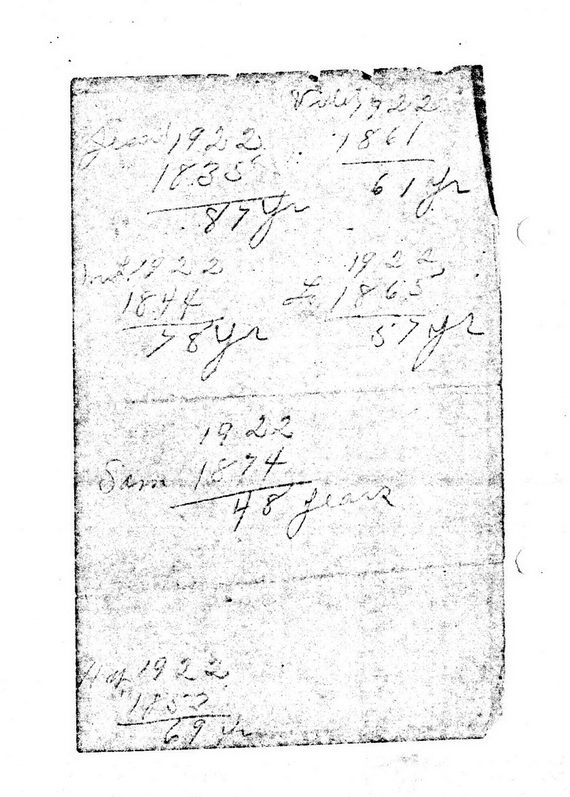 1922
1835
87 yr
1922
1861
61 yr
1922
1844
78 yr
1922
1865
57 yr
1922
Sam 1874
48 years
1922
1853
69 yr